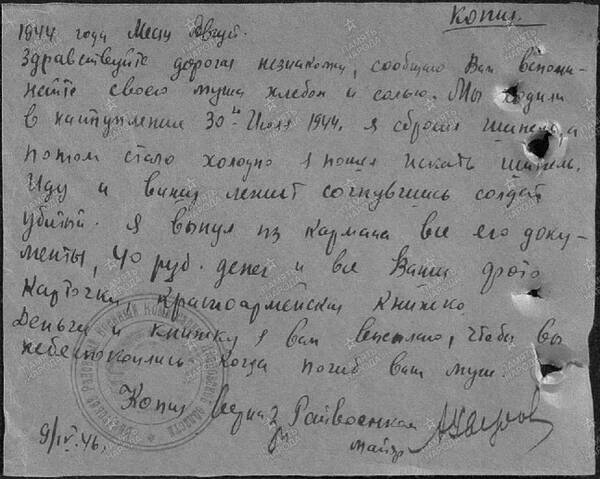 Копия.
1944 года Месяц Август.
Здравствуйте дорогая незнакомка, сообщаю Вам вспоми-
найте своего мужа хлебом и солью. Мы ходили
в наступление 30го Июля 1944. Я сбросил шинель, а
потом стало холодно я пошел искать шинель.
Иду и вижу лежит согнувшись солдат
убитый. Я вынул из кармана все его доку-
менты, 40 руб. денег и все Ваши фото
карточки, Красноармейская Книжка.
Деньги и книжку я вам высылаю, чтобы вы
небеспокоились когда погиб ваш муж.
Копия верна: Райвоенком
майор
9/IV.46.
ПАМЯТЬ НАРОДА